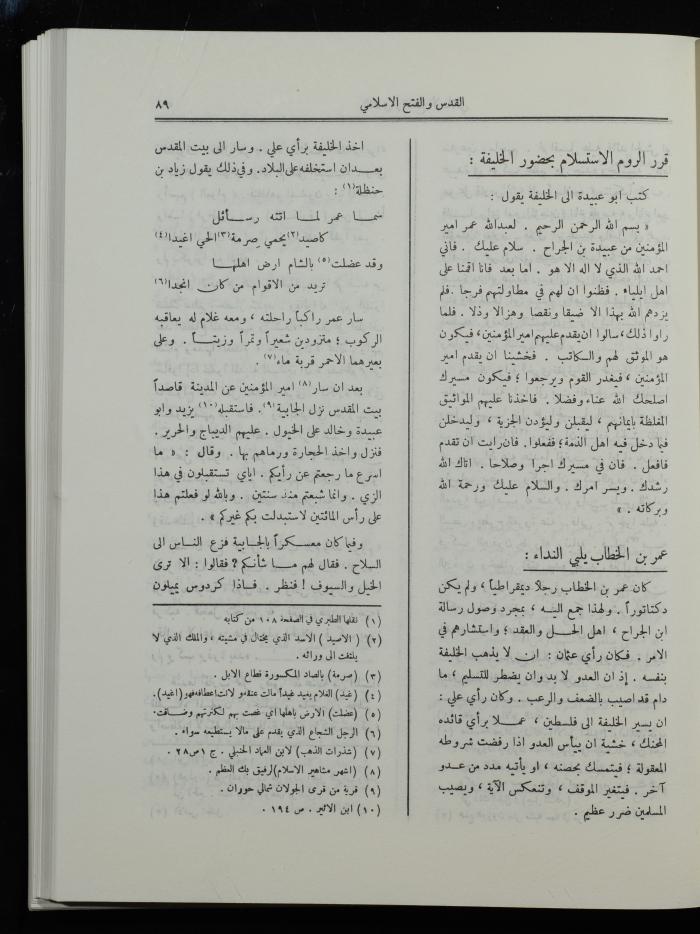 القدس والفتح الاسلامي
٨٩
قرر الروم الاستسلام بحضور الخليفة :
كتب ابو عبيدة الى الخليفة يقول :
« بسم الله الرحمن الرحيم . لعبدالله عمر امير
المؤمنين من عبيدة بن الجراح . سلام عليك . فاني
احمد الله الذي لا اله الا هو . اما بعد فانا اقمنا على
اهل ايلياء . فظنوا ان لهم في مطاولتهم فرجا . فلم
يزدهم الله بهذا الا ضيقا ونقصا وهزالا وذلا . فلما
راوا ذلك ، سالوا ان يقدم عليهم امير المؤمنين ، فيكون
هو الموثق لهم والكاتب . فخشينا ان يقدم امير
المؤمنين ، فيغدر القوم ويرجعوا ؛ فيكون مسيرك
اصلحك الله عناء وفضلا . فاخذنا عليهم المواثيق
المغلظة بايمانهم ، ليقبلن وليؤدن الجزية ، وليدخلن
فيا دخل فيه اهل الذمة ؛ ففعلوا . فان رايت ان تقدم
فافعل . فان في مسيرك اجرا وصلاحا . اتاك الله
رشدك . ويسر امرك . والسلام عليك ورحمة الله
وبركاته . »
عمر بن الخطاب يلبي النداء :
كان عمر بن الخطاب رجلا ديمقراطياً ، ولم يكن
دكتاتوراً . ولهذا جمع اليه ، بمجرد وصول رسالة
ابن الجراح ، اهل الحل والعقد ؛ واستشارهم في
الامر . فكان رأي عثمان : ان لا يذهب الخليفة
بنفسه . إذ ان العدو لا بد وان يضطر للتسليم ، ما
دام قد اصيب بالضعف والرعب . وكان رأي علي :
ان يسير الخليفة الى فلسطين ، عملا برأي قائده
المحنك ، خشية ان ييأس العدو اذا رفضت شروطه
المعقولة ؛ فيتمسك بحصنه ، او يأتيه مدد من عدو
آخر . فيتغير الموقف ، وتنعكس الآية ، ويصيب
المسلمين ضرر عظيم .
اخذ الخليفة برأي علي . وسار الى بيت المقدس
بعد ان استخلفه على البلاد . وفي ذلك يقول زياد بن
حنظلة (١) :
سما عمر لما اتته رسائل
كاصيد (٢) يحمي صرمة (٣) الحي اغيدا (٤)
وقد عضلت (٥) بالشام ارض اهلها
تريد من الاقوام من كان انجدا (٦)
سار عمر راكباً راحلته ، ومعه غلام له يعاقبه
الركوب ؛ متزودين شعيراً وتمراً وزيتاً . وعلى
بعيرهما الاحمر قربة ماء (٧) .
بعد ان سار (٨) امير المؤمنين عن المدينة قاصداً
بيت المقدس نزل الجابية (٩) . فاستقبله (١٠) يزيد وابو
عبيدة وخالد على الخيول . عليهم الديباج والحرير .
فنزل واخذ الحجارة ورماهم بها . وقال : « ما
اسرع ما رجعتم عن رأيكم . اياي تستقبلون في هذا
الزي . وانما شبعتم منذ سنتين . وبالله لو فعلتم هذا
على رأس المائتين لاستبدلت بكم غيركم » .
وفيما كان معسكراً بالجابية فزع الناس الى
السلاح . فقال لهم ما شأنكم ? فقالوا : الا ترى
الخيل والسيوف ! فنظر . فاذا كردوس يميلون
(١) نقلها الطبري في الصفحة ١٠٨ من كتابه
(٢) ( الاصيد ) الاسد الذي يختال في مشيته ، والملك الذي لا
يلتفت الى ورائه .
(٣) (صرمة) بالصاد المكسورة قطاع الابل .
(٤) (غيد) الغلام يغيد غيداً مالت عنقه ولانت اعطافه فهو (اغيد) .
(٥) (عضلت) الارض باهلها اي غصت بهم لكثرتهم وضاقت .
(٦) الرجل الشجاع الذي يقدم على مالا يستطيعه سواه .
(٧) (شذرات الذهب) لابن العماد الحنبلي . ج ١ ص ٢٨ .
(٨) (اشهر مشاهير الاسلام) لرفيق بك العظم .
(٩) قرية من قرى الجولان شمالي حوران .
(١٠) ابن الاثير . ص ١٩٤ .